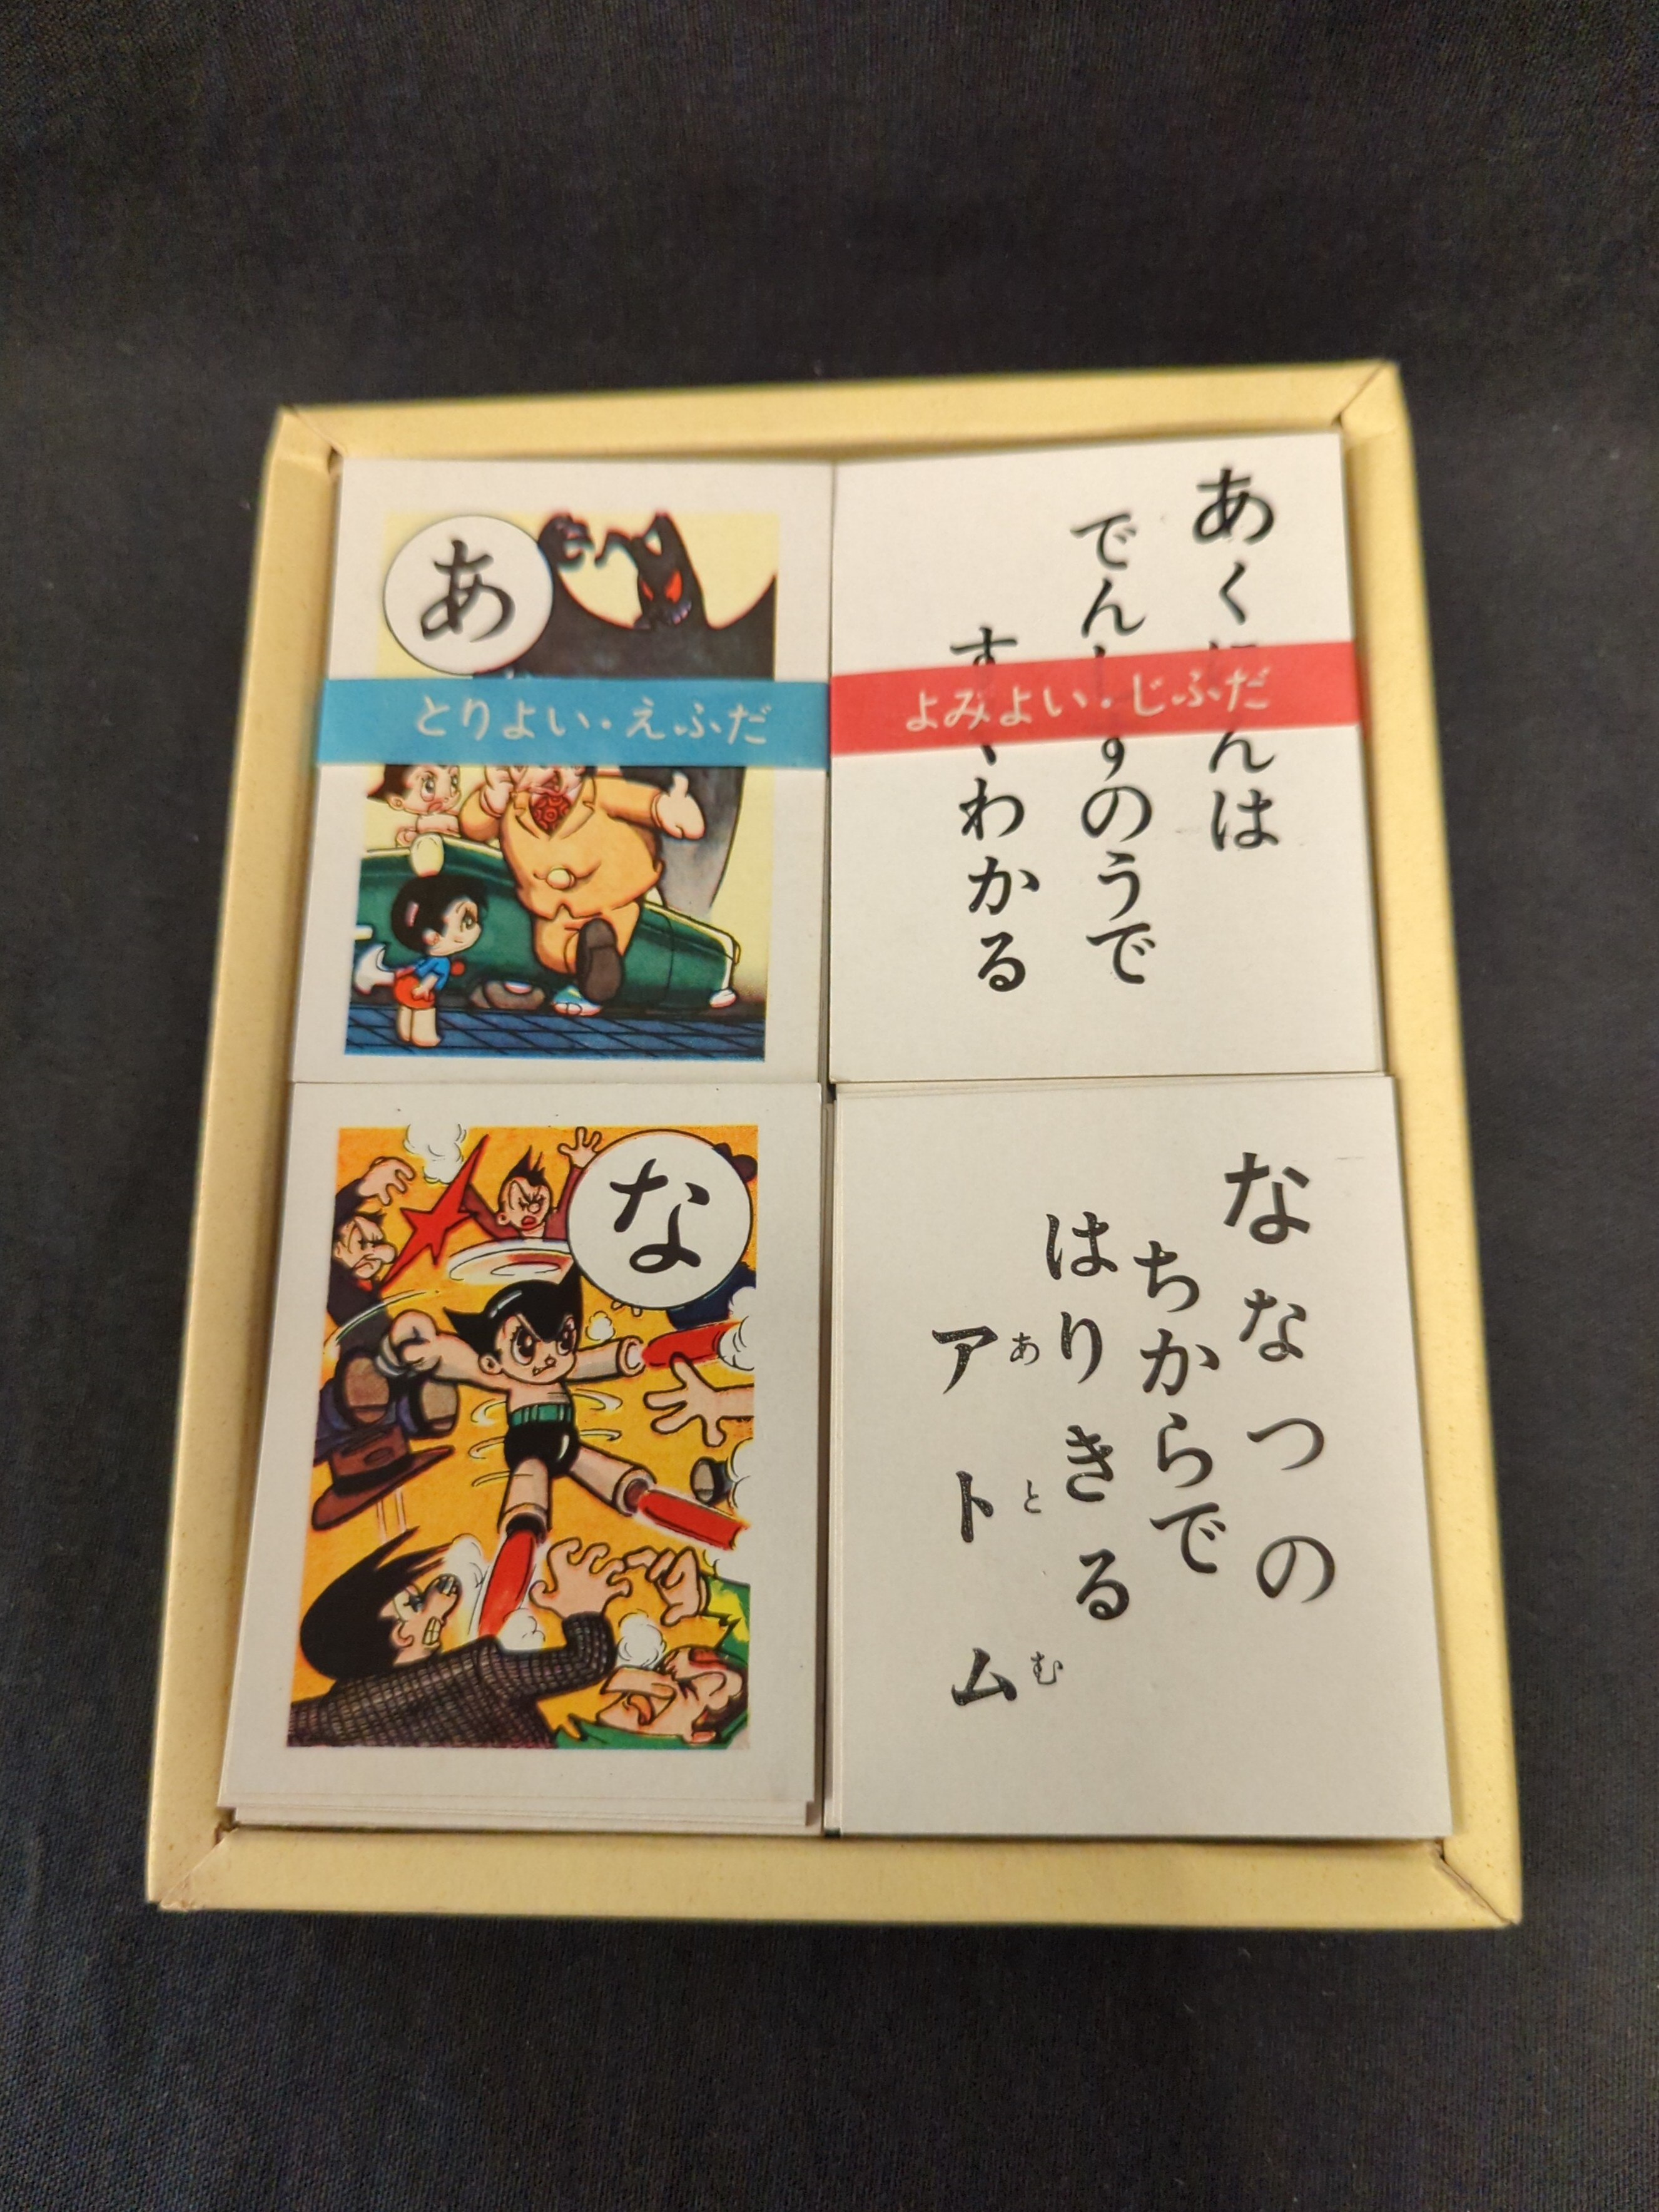 あ
とりよい・えふだ
あくにんは
でんしずのうで
すぐわかる
よみよい・じふだ
な
ななつの
ちからで
はりきる
アトム
あとむ